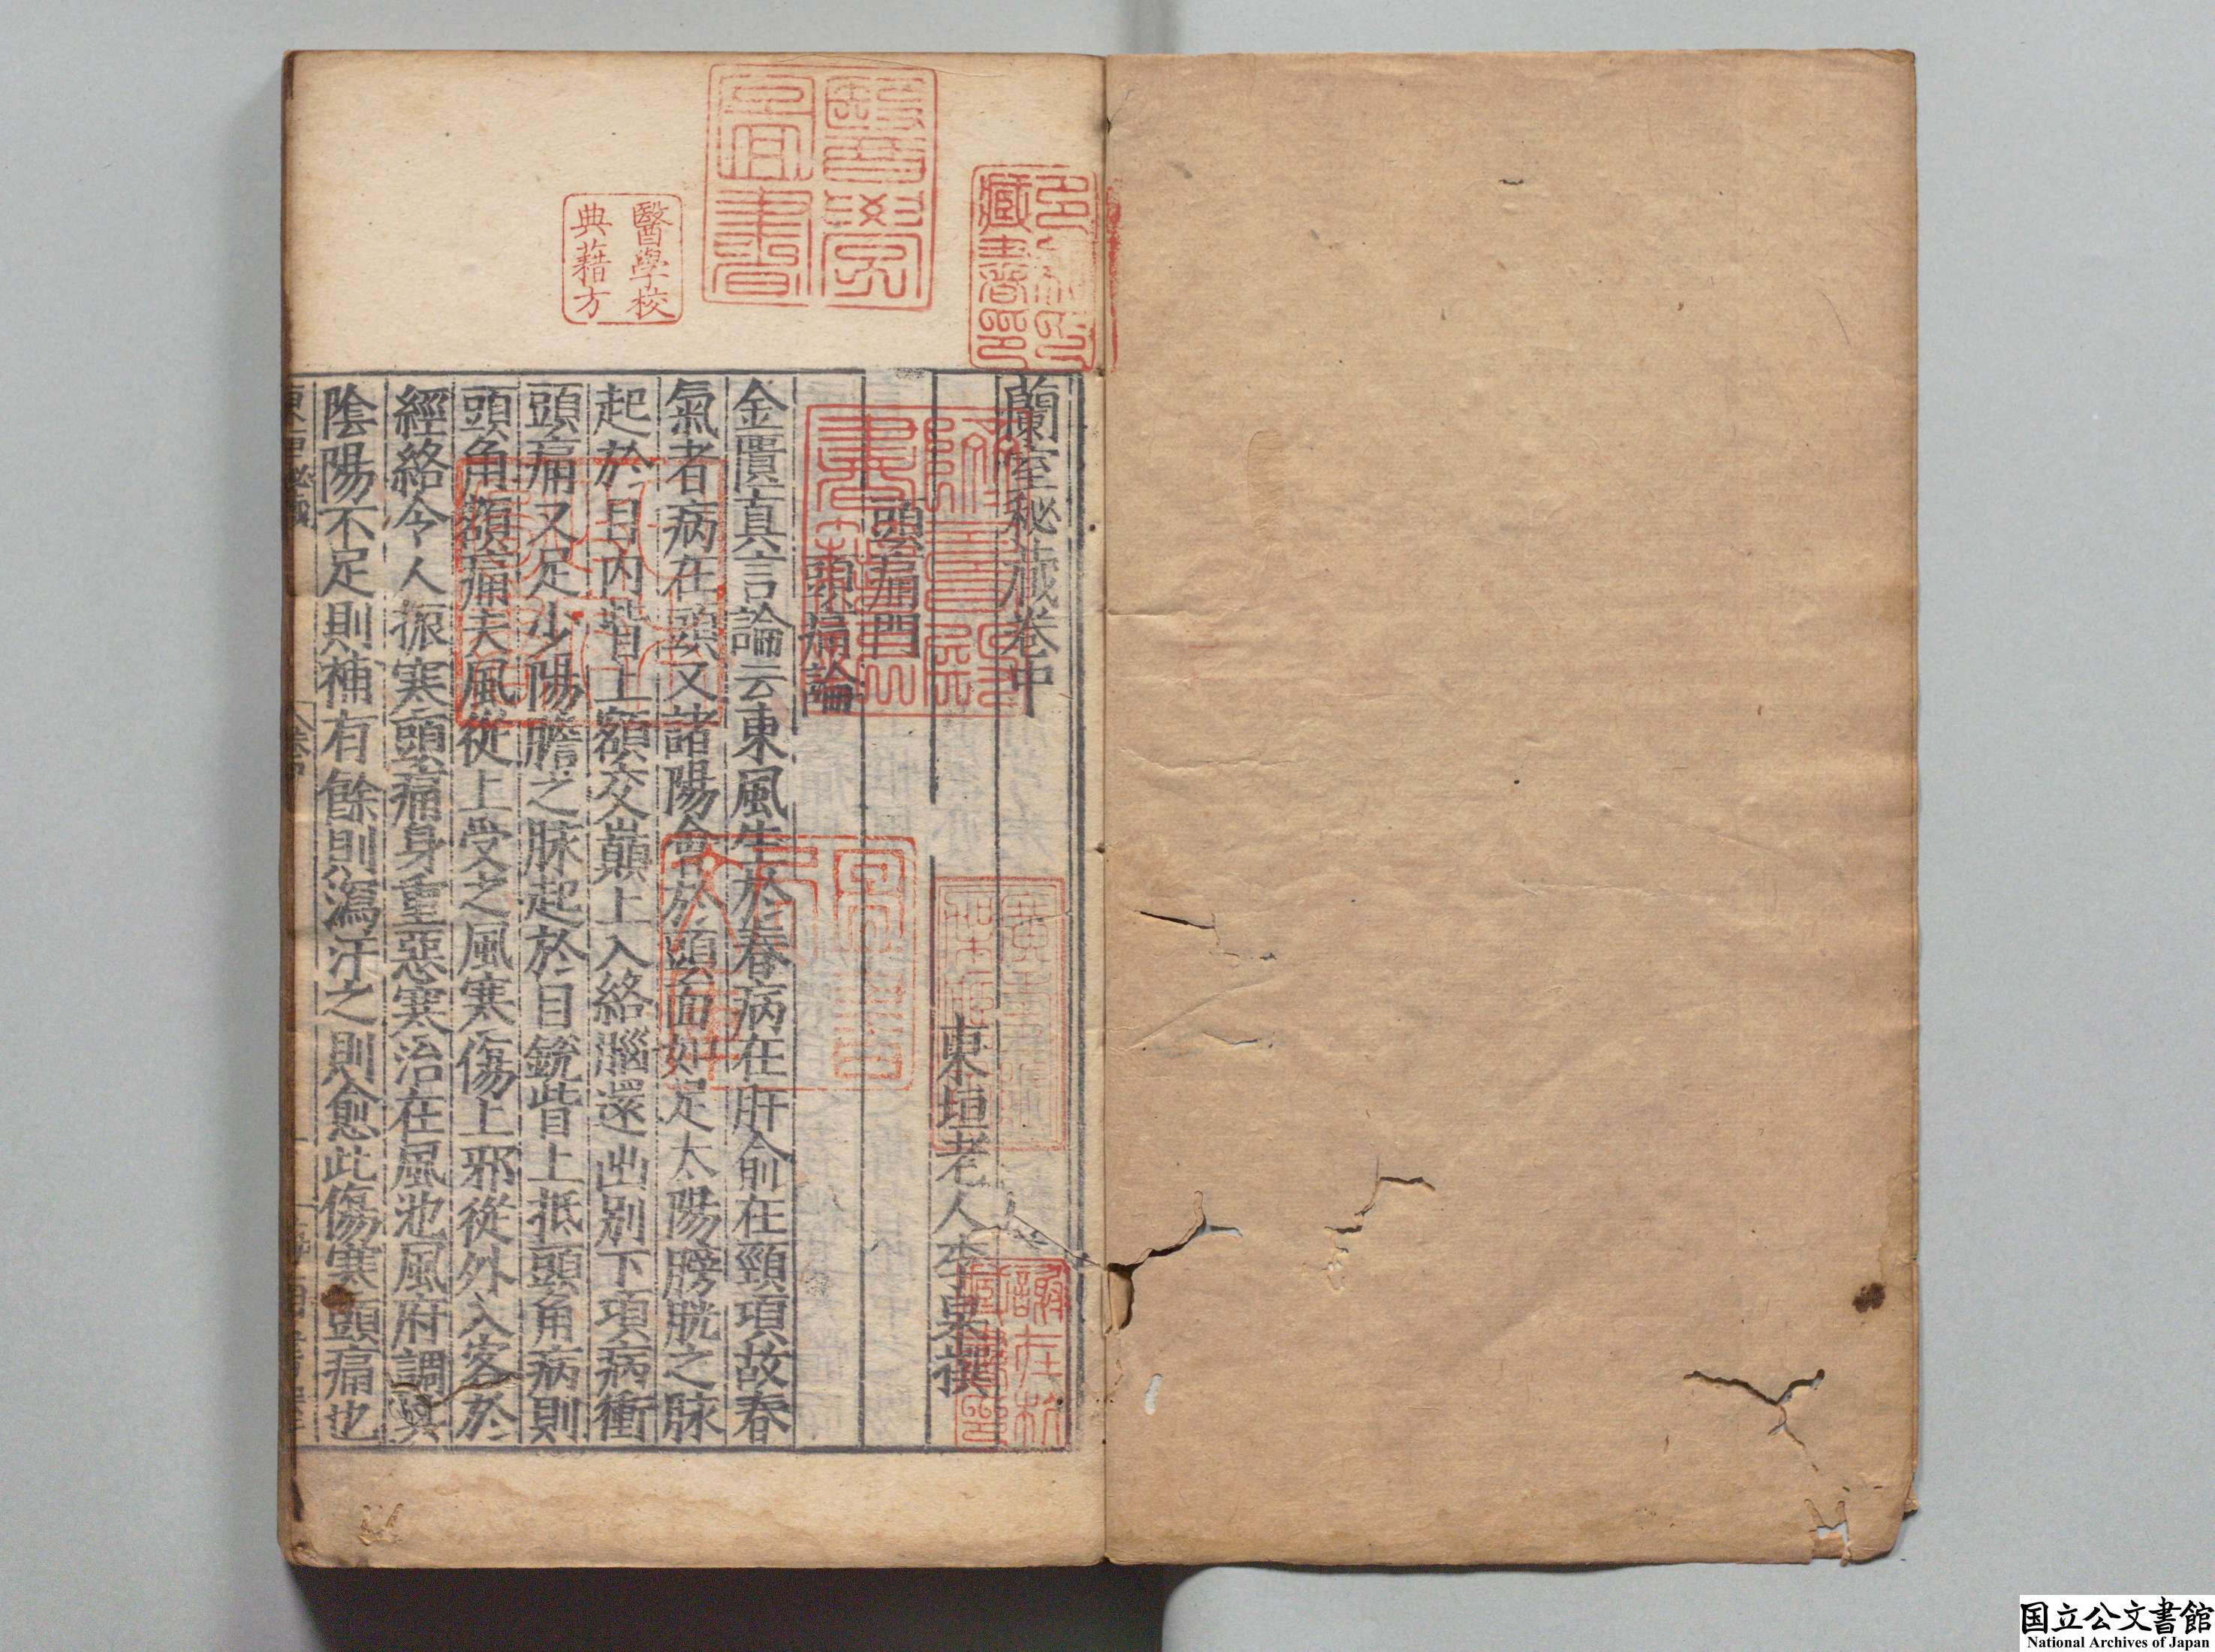 蘭室秘藏卷中
東垣老人李杲撰
頭痛門
頭痛論
金匱真言論云東風生於春病在肝俞在頸項故春
氣者病在頭又諸陽會於頭面如足太陽膀胱之脉
起於目内眥上額交巔上入絡腦還出別下項病衝
頭痛又足少陽膽之脉起於目銳眥上抵頭角病則
頭角額痛夫風從上受之風寒傷上邪從外入客於
經絡令人振寒頭痛身重惡寒治在風池風府調其
陰陽不足則補有餘則瀉汗之則愈此傷寒頭痛也
醫學圖書
醫學校
典藉方
藏書印
国立公文書館
National Archives of Japan